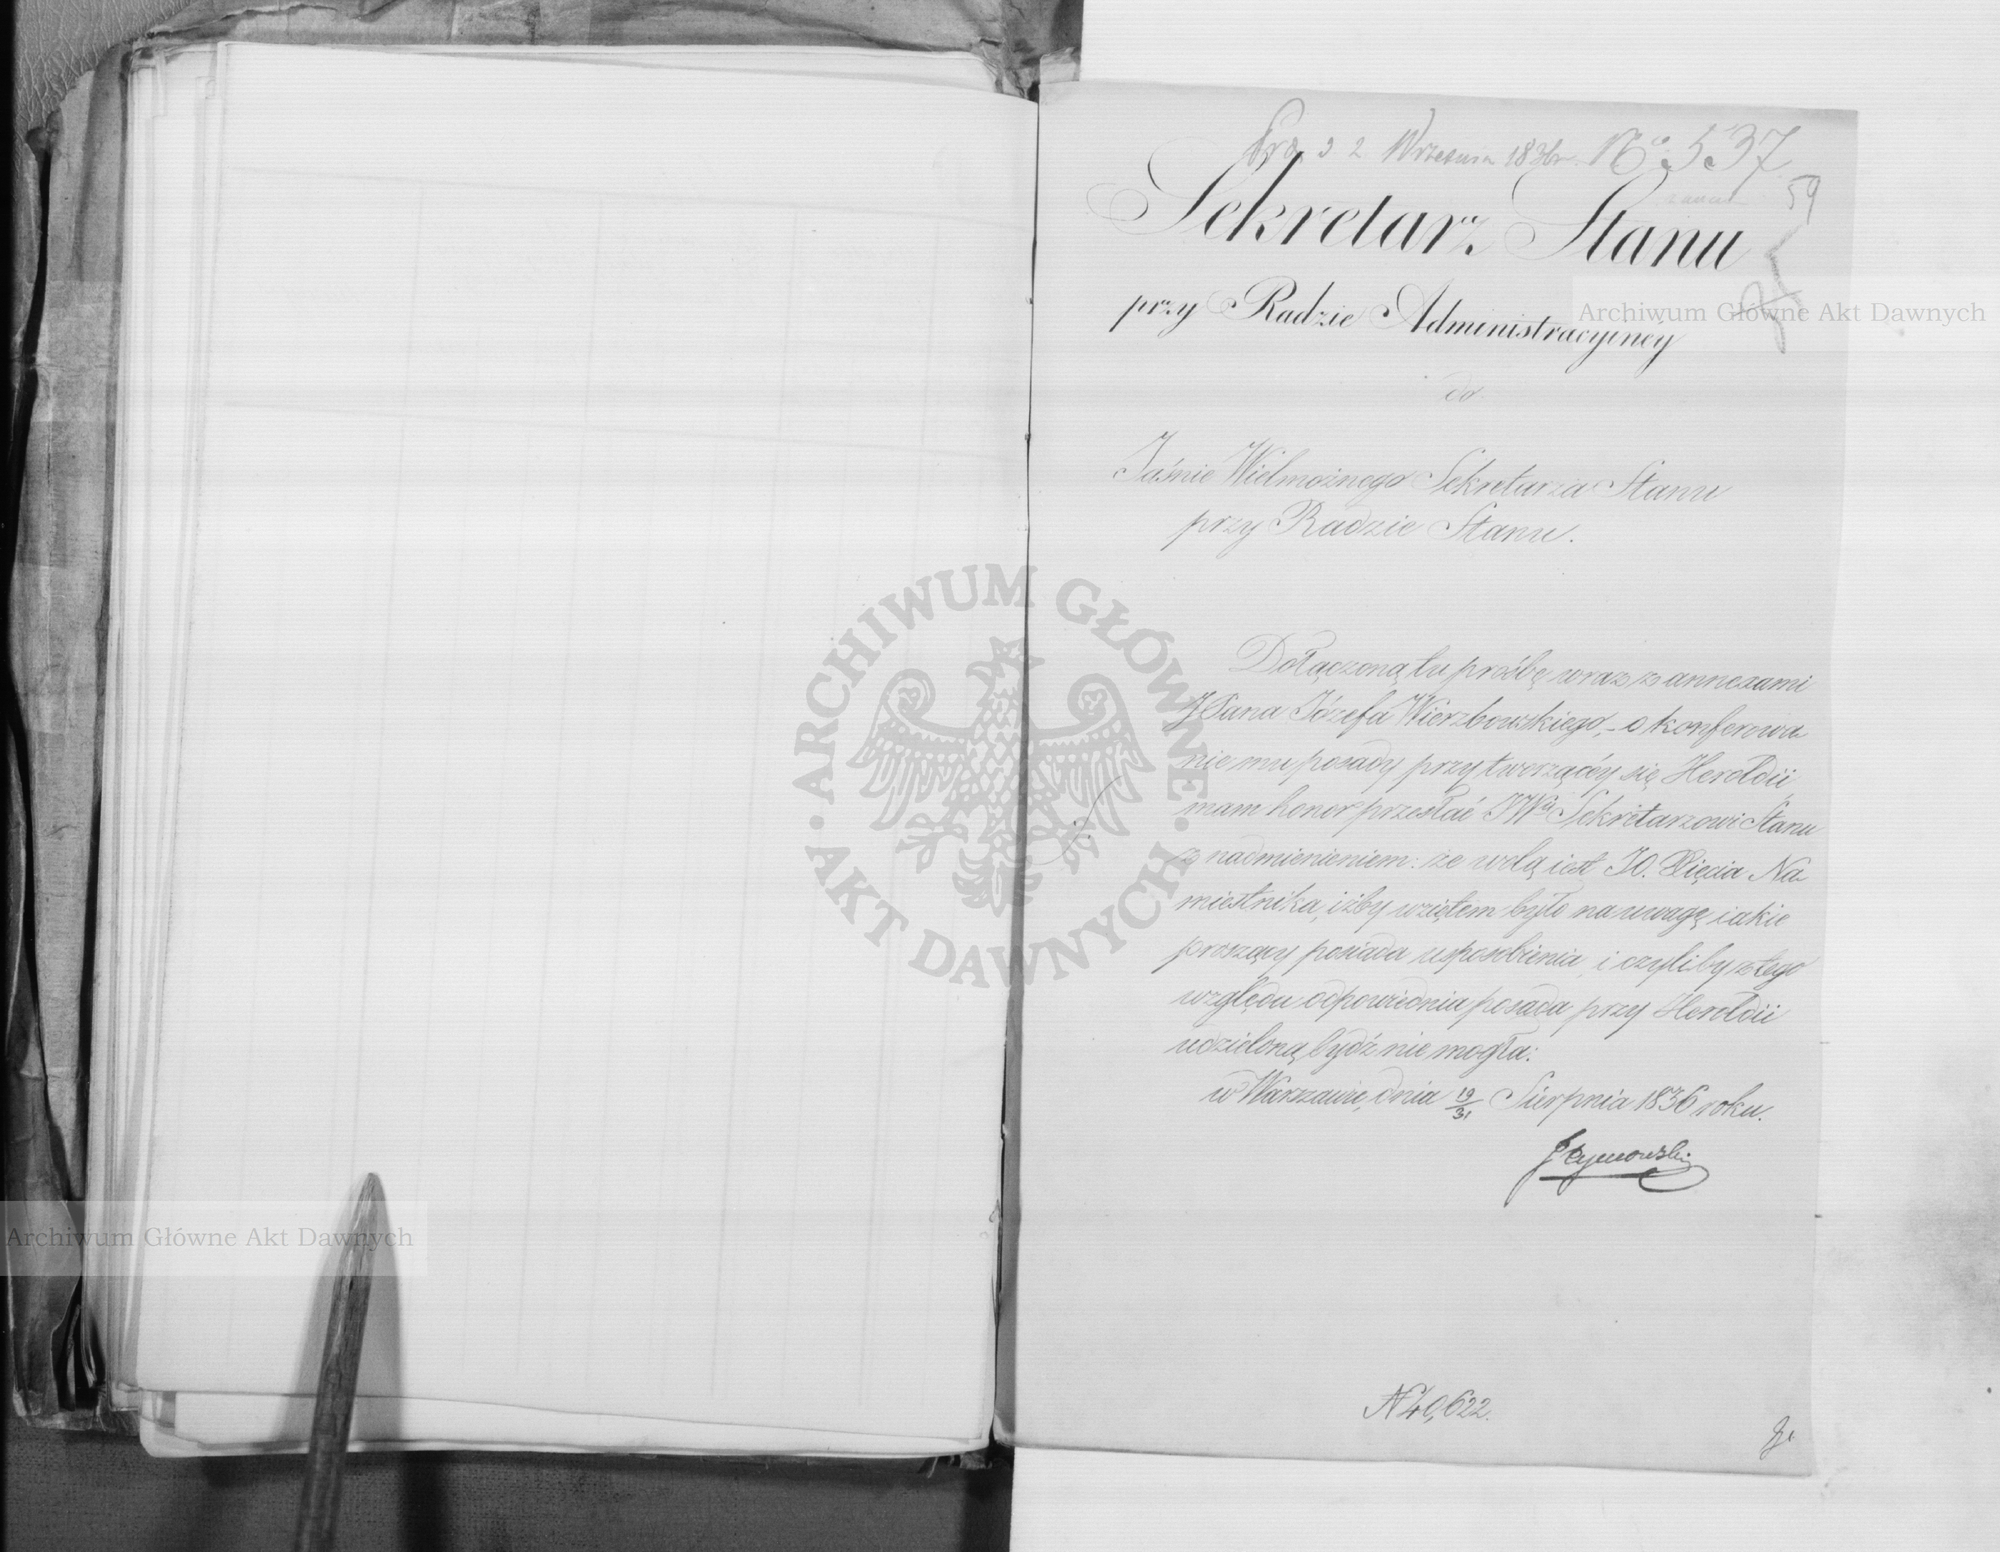 Września 1836 r. No 537
59
Sekretarz Stanu
przy Radzie Administracyiney
do
Jaśnie Wielmożnego Sekretarza Stanu
przy Radzie Stanu.
Dołączoną tu prośbę wraz z annexami
JPana Józefa Wierzbowskiego, – o konferowa
nie mu posady przy tworzącéy się Heroldii,
mam honor przesłać JWu Sekretarzowi Stanu
z nadmienieniem: że wolą iest JO. Xięcia Na
miestnika, iżby wziętem było na uwagę iakie
proszący posiada usposobienia, i czyliby z tego
względu odpowiednia posada przy Heroldii
udzieloną bydź nie mogła:
w Warszawie, dnia 19/31 Sierpnia 1836 roku.
N 40,622.
Archiwum Główne Akt Dawnych
Archiwum Główne Akt Dawnych
ARCHIWUM GŁÓWNE · AKT DAWNYCH ·